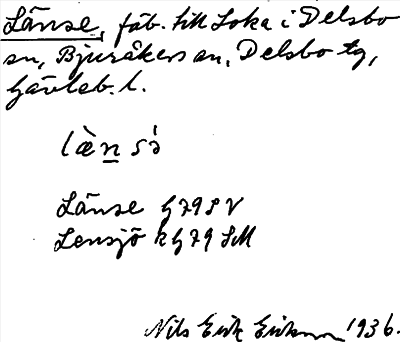 Länse, fäb. till Loka i Delsbo
sn, Bjuråkers sn, Delsbo tg,
Gävleb. l.
læ̀n sɘ̀
Länse G 79 S V
Lensjö k G 79 SM
Nils Erik Eriksson 1936.